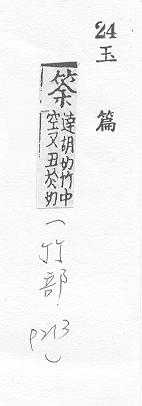 24
玉篇
筡
達胡切竹中
空又丑於切
(竹部 p213)